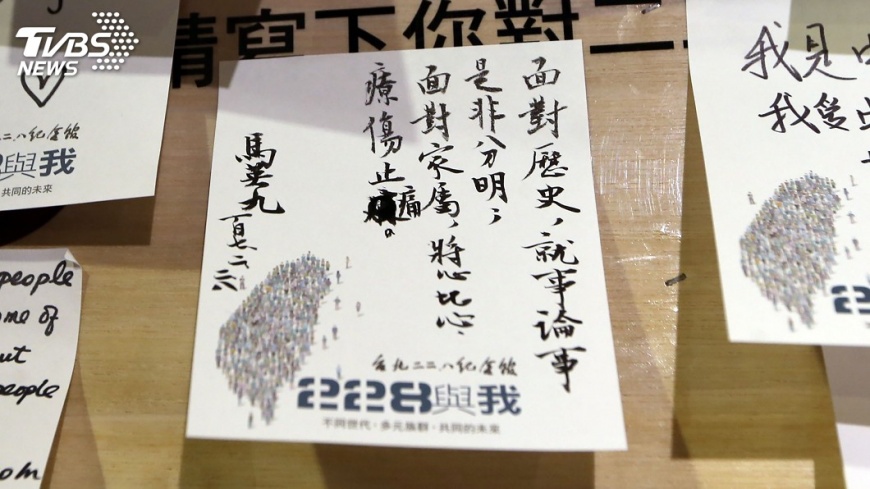 TVBS
NEWS
請寫下你對二
面對歷史，就事論事
是非分明；
面對家屬，將心比心，
療傷止
痛。
馬英九
台北二二八紀念館
228與我
不同世代·多元族群·共同的未來
二二八紀念館
與我
共同的未來
people
me of
ut
people
om
我見
我愛
22